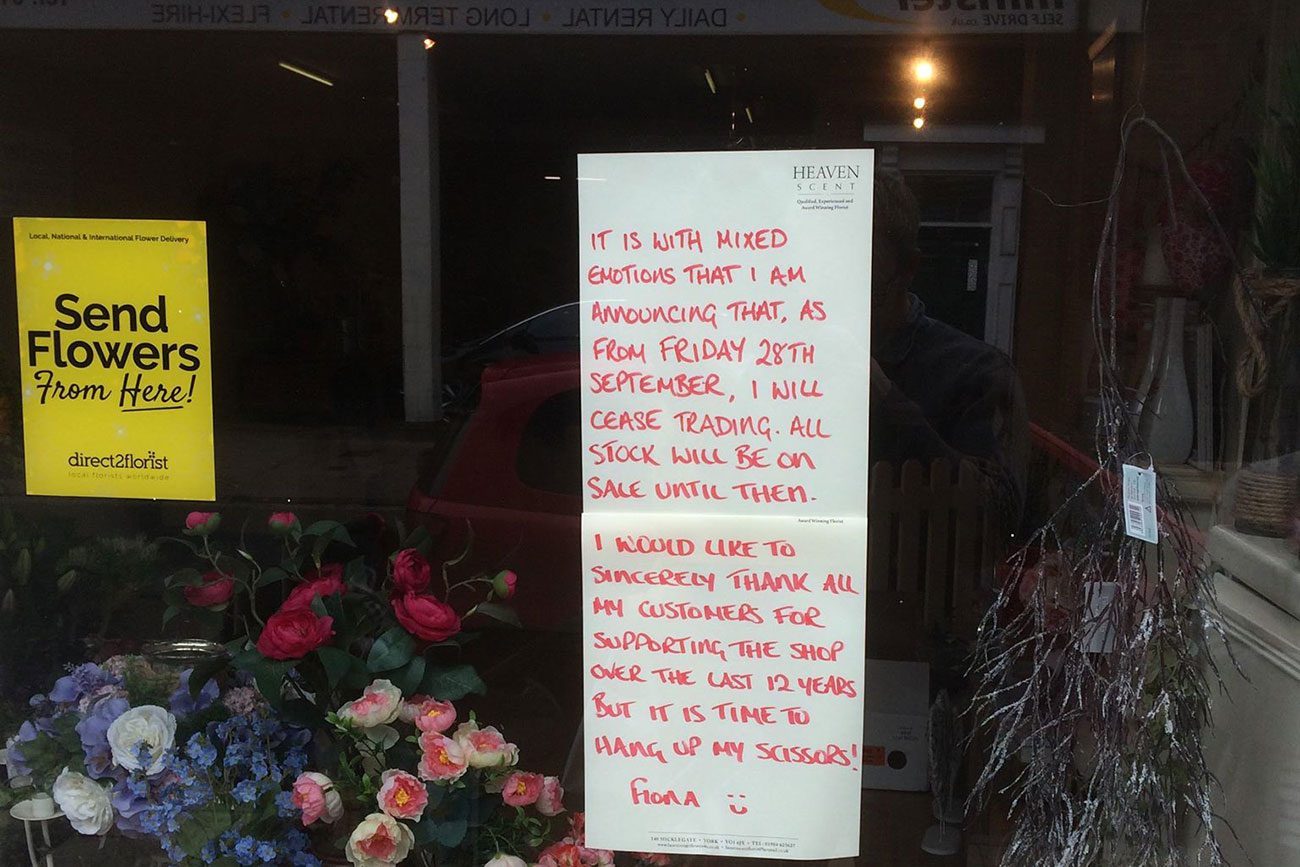 DAILY RENTAL • LONG TERM RENTAL • FLEXI-HIRE
SELF DRIVE .co.uk
Local, National & International Flower Delivery
Send
Flowers
From Here!
direct2florist
local florists worldwide
HEAVEN
SCENT
Qualified, Experienced and
Award Winning Florist
IT IS WITH MIXED
EMOTIONS THAT I AM
ANNOUNCING THAT, AS
FROM FRIDAY 28TH
SEPTEMBER, I WILL
CEASE TRADING. ALL
STOCK WILL BE ON
SALE UNTIL THEN.
Award Winning Florist
I WOULD LIKE TO
SINCERELY THANK ALL
MY CUSTOMERS FOR
SUPPORTING THE SHOP
OVER THE LAST 12 YEARS
BUT IT IS TIME TO
HANG UP MY SCISSORS!
FIONA
MICKLEGATE • YORK • YO1 6JX • TEL: